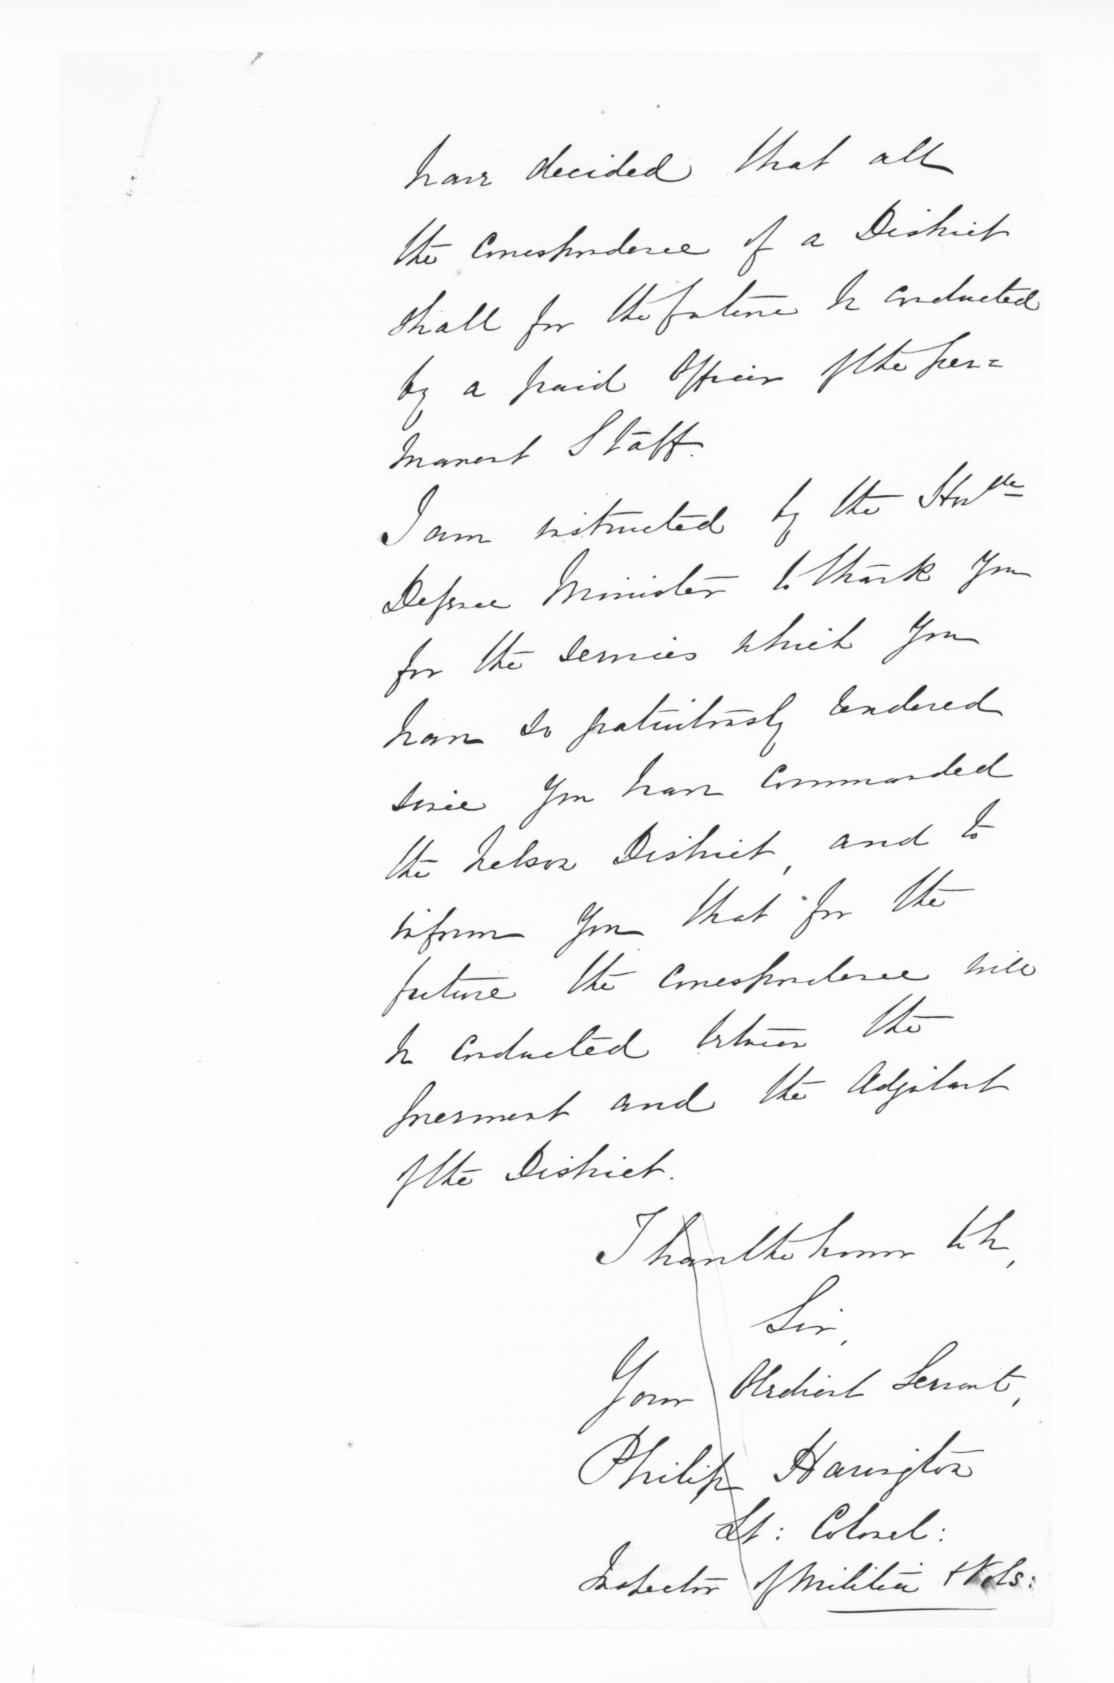 have decided that all
the correspondence of a District
shall for the future be conducted
by a paid Officer of the per=
manent Staff.
I am instructed by the Honble
Defence Minister to thank you
for the services which you
have so gratuitously rendered
since you have commanded
the Nelson District, and to
inform you that for the
future the correspondence will
be conducted between the
Government and the Adjutant
of the District.
I have the honor to be,
Sir,
Your Obedient Servant,
Philip Harington
Lt: Colonel:
Inspector of Militia & Vols: